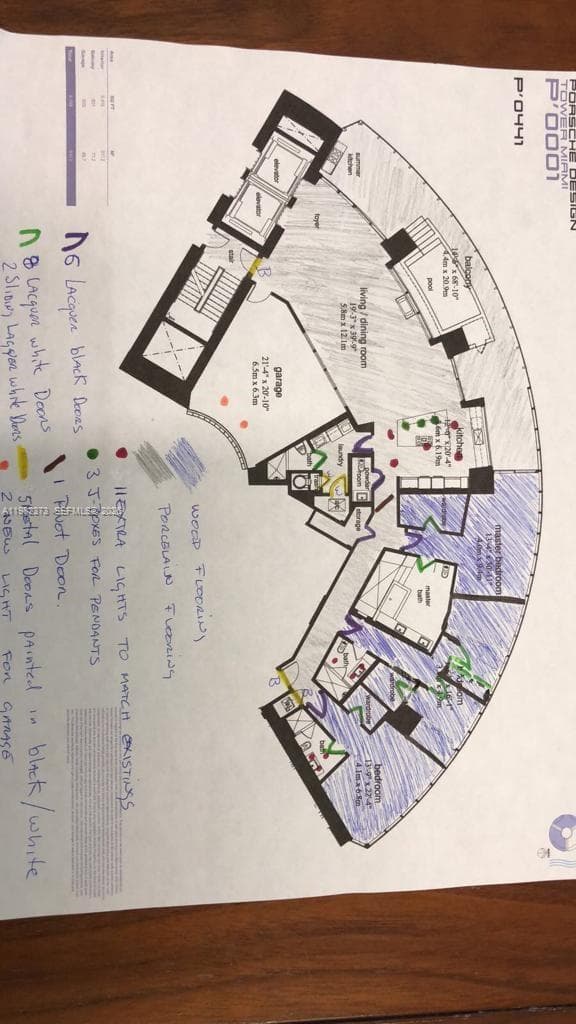 PORSCHE DESIGN
TOWER MIAMI
P'0001
P'0441
summer
kitchen
elevator
elevator
foyer
stair
B
balcony
pool
living / dining room
19'-3" x 39'-9"
5.8m x 12.1m
garage
21'-4" x 20'-10"
6.5m x 6.3m
kitchen
laundry
bath
powder
room
storage
wardrobe
master bedroom
master
bath
bath
wardrobe
wardrobe
bath
B
B
bedroom
13'-9" x 22'-4"
4.1m x 6.8m
6 LACQUER black DOORS
8 LACQUER white DOORS
2 Sliding LACQUER white Doors
5 Metal Doors painted in black/white
1 Pivot Door.
3 J BOXES FOR PENDANTS
11 EXTRA LIGHTS TO MATCH EXISTINGS
2 NEW LIGHT FOR GARAGE
WOOD FLOORING
PORCELAIN FLOORING